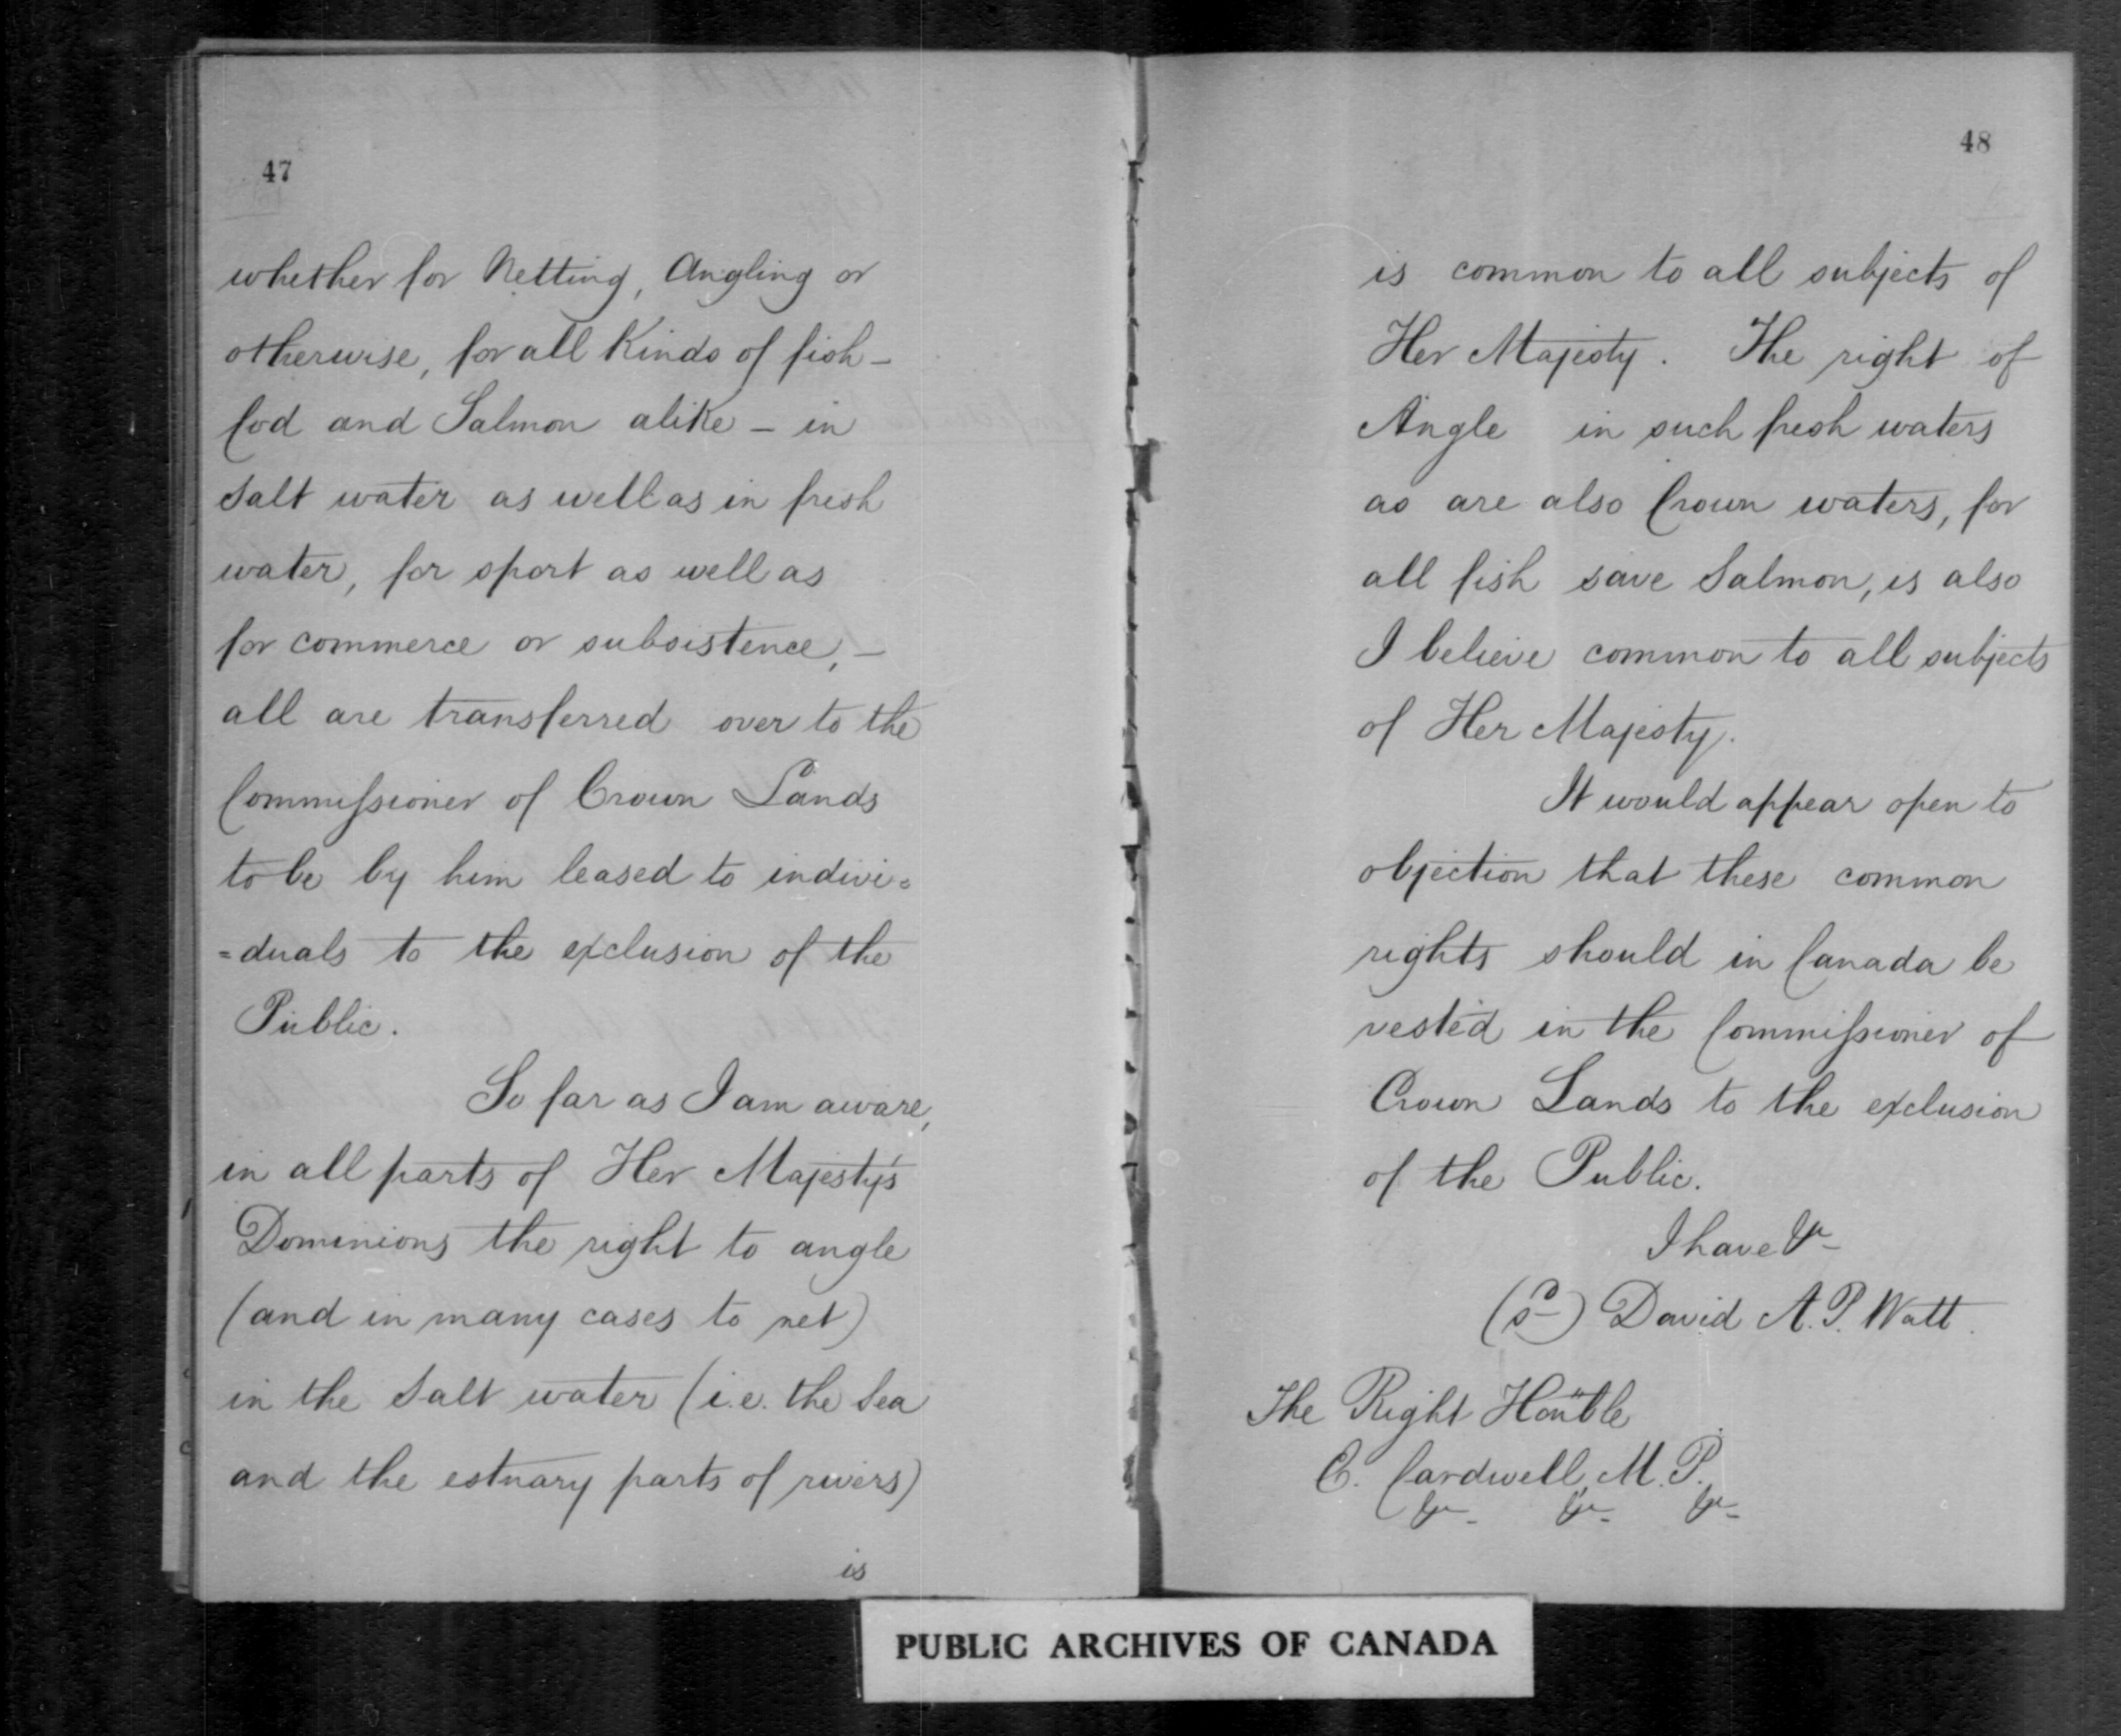 47
whether for Netting, Angling or
otherwise, for all Kinds of fish –
Cod and Salmon alike – in
Salt water as well as in fresh
water, for sport as well as
for commerce or subsistence, –
all are transferred over to the
Commissioner of Crown Lands
to be by him leased to indivi=
=duals to the exclusion of the
Public.
So far as I am aware,
in all parts of Her Majesty's
Dominions the right to angle
(and in many cases to net)
in the Salt water (i.e. the Sea
and the estuary parts of rivers)
is
48
is common to all subjects of
Her Majesty. The right of
Angle in such fresh waters
as are also Crown waters, for
all fish save Salmon, is also
I believe common to all subjects
of Her Majesty.
It would appear open to
objection that these common
rights should in Canada be
vested in the Commissioner of
Crown Lands to the exclusion
of the Public.
I have &c
(sd) David A. P. Watt.
The Right Honble
E. Cardwell, M.P.
&c &c &c
PUBLIC ARCHIVES OF CANADA